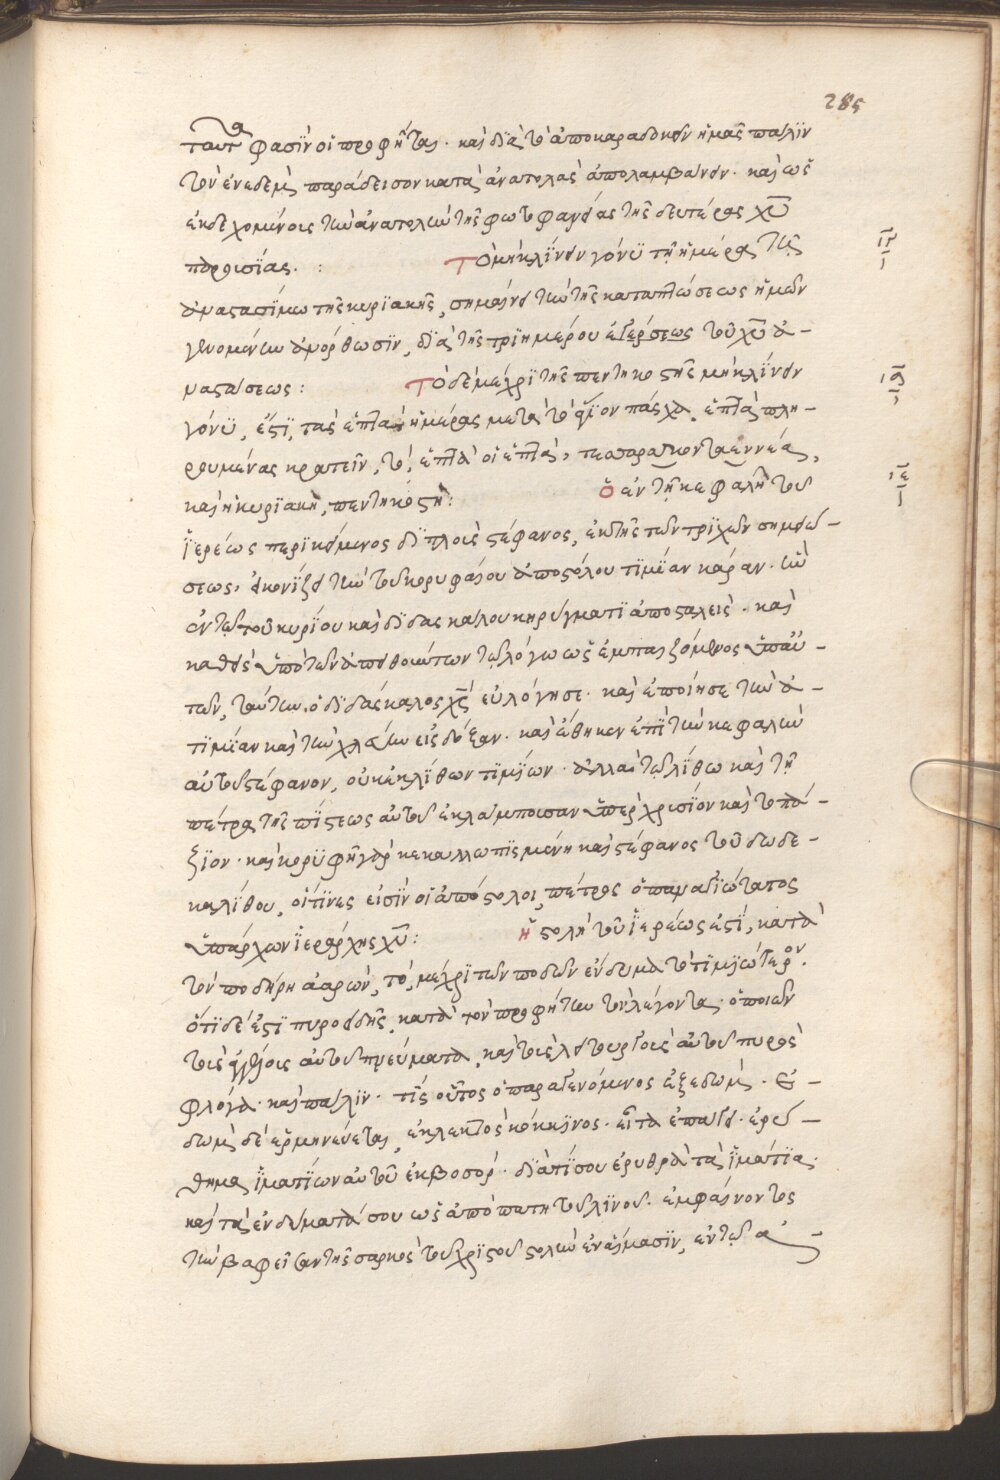 285
ταῦτα φασὶν οἱ προφῆται. καὶ διὰ τὸ ἀποκαραδοκεῖν ἡμᾶς πάλϊν
τὸν ἐν ἐδὲμ παράδεισον κατὰ ἀνατολὰς ἀπολαμβάνειν. καὶ ὡς
ἐκδεχομένοις τὴν ἀνατολὴν τῆς φωτοφανείας τῆς δευτέρας χυ
παρουσίας. : Τὸ μὴ κλίνειν γόνϋ τῇ ἡμέρᾳ τῆς
ιγ
ἀναστασίμω τῆς κυριακῆς, σημαίνει τὴν τῆς καταπτώσεως ἡμῶν
γενομένην ἀνόρθωσϊν, διὰ τῆς τριημέρου ἐγέρσεως τοῦ χυ ἀ-
ναστάσεως: Τὸ δὲ μέχρϊ τῆς πεντηκοστῆς μὴ κλίνειν
ιδ
γόνϋ, ἔστϊ, τὰς ἑπτὰ ἡμέρας μετὰ τὸ ἅγϊον πάσχα. ἑπτὰ πλη-
ρουμένας κρατεῖν, τὸ, ἑπτὰ οἱ ἑπτὰ, τεσσαρακονταεννέα,
καὶ ἡ κυρϊακὴ, πεντηκοστή: Ὁ ἐν τῇ κεφαλῇ τοῦ
ιε
ἱερέως περικείμενος διπλοῖς στέφανος, ἐκ τῆς τῶν τριχῶν σημειώ-
σεως, εἰκονίζει τὴν τοῦ κορυφαίου ἀποστόλου τιμίαν κάραν. ἣν
ἐν τῷ τοῦ κυρίου καὶ διδασκάλου κηρύγματϊ ἀποσταλεὶς. καὶ
καρθεὶς ὑπὸ τῶν ἀπειθούντων τῷ λόγω ὡς ἐμπαιζόμενος ὑπ᾽ αὐ-
τῶν, ταύτην ὁ διδάσκαλος χς εὐλόγησε. καὶ ἐποίησε τὴν ἀ-
τϊμίαν καὶ τὴν χλεύην εἰς δόξαν. καὶ ἔθηκεν ἐπὶ τὴν κεφαλὴν
αὐτοῦ στέφανον, οὐκ ἐκ λίθων τιμίων. ἀλλὰ τῷ λίθω καὶ τῇ
πέτρᾳ τῆς πίστεως αὐτοῦ ἐκλάμπουσαν ὑπὲρ χρισίον καὶ τοπά-
ζϊον. καὶ κορϋφὴ γὰρ κεκαλλωπισμένη καὶ στέφανος τοῦ δωδε-
καλίθου, οἵτϊνες εἰσὶν οἱ ἀπόστολοι, πέτρος ὁ παναγιώτατος
ὑπάρχων ἱεράρχης χυ: Ἡ στολὴ τοῦ ἱερέως ἐστὶ, κατὰ
τὸν ποδήρη ἀαρών, τὸ, μέχρϊ τῶν ποδῶν ἔνδυμα τὸ τιμιώτερον.
ὅτϊ δέ ἐστϊ πυροειδὴς, κατὰ τὸν προφήτην τὸν λέγοντα. ὁ ποιῶν
τοὺς ἀγγέλους αὐτοῦ πνεύματα, καὶ τοὺς λειτουργοὺς αὐτοῦ πυρὸς
φλόγα. καὶ πάλιν. τίς οὗτος ὁ παραγενόμενος ἐξ ἐδὼμ. ἐ-
δὼμ δὲ ἑρμηνεύεται, ἐκλεκτὸς κόκκινος. εἶτα ἐπάγει. ἐρύ-
θημα ἱματίων αὐτοῦ ἐκ βοσόρ. διατί σου ἐρυθρὰ τὰ ἱμάτϊα.
καὶ τὰ ἐνδύματά σου ὡς ἀπὸ πατητοῦ λινοῦ. ἐμφαίνοντος
τὴν βαφεῖσαν τῆς σαρκὸς τοῦ χριστοῦ στολὴν ἐν αἵμασϊν, ἐν τῷ ἀ-